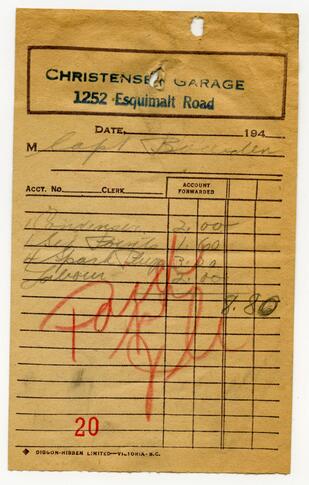 CHRISTENSEN GARAGE
1252 Esquimalt Road
DATE, 194
M Capt Bowden
ACCT. NO. CLERK ACCOUNT FORWARDED
Condenser 2.00
1 Set Points 1.60
4 Spark Plugs 3.20
Labour 2.00
8.80
Paid
20
DIGGON-HIBBEN LIMITED—VICTORIA, B.C.